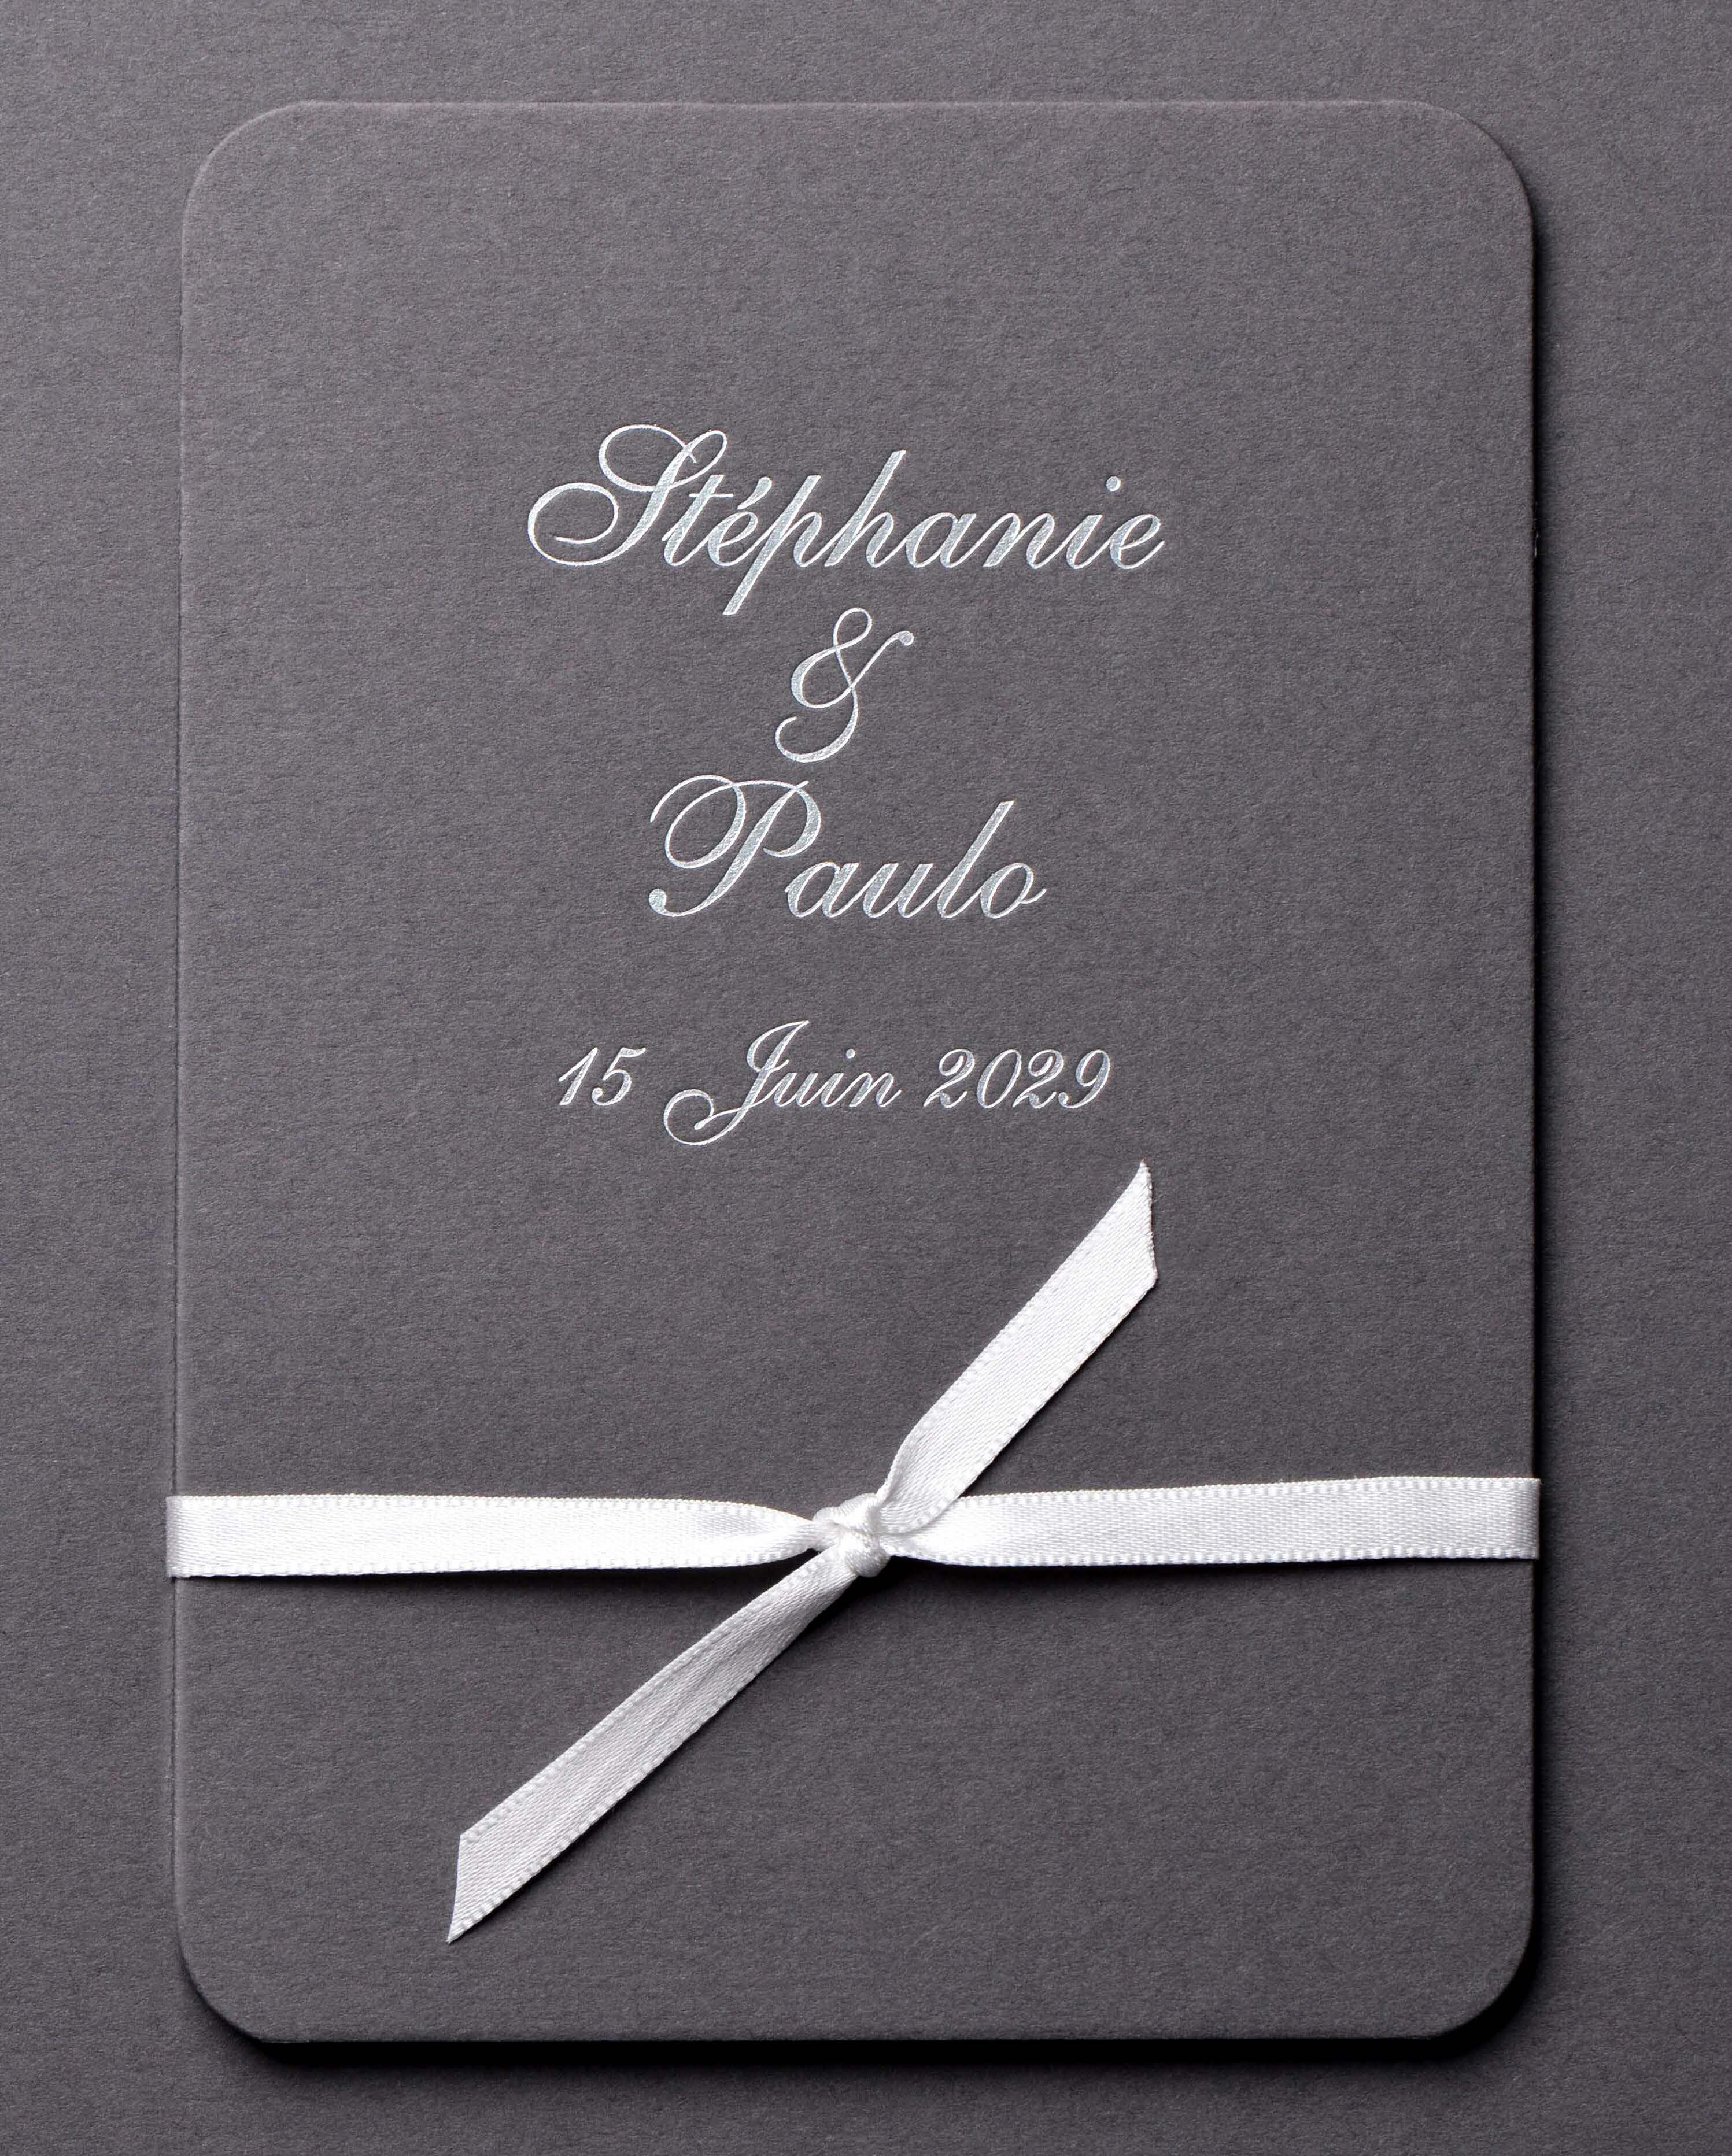 Stéphanie
&
Paulo
15 Juin 2029